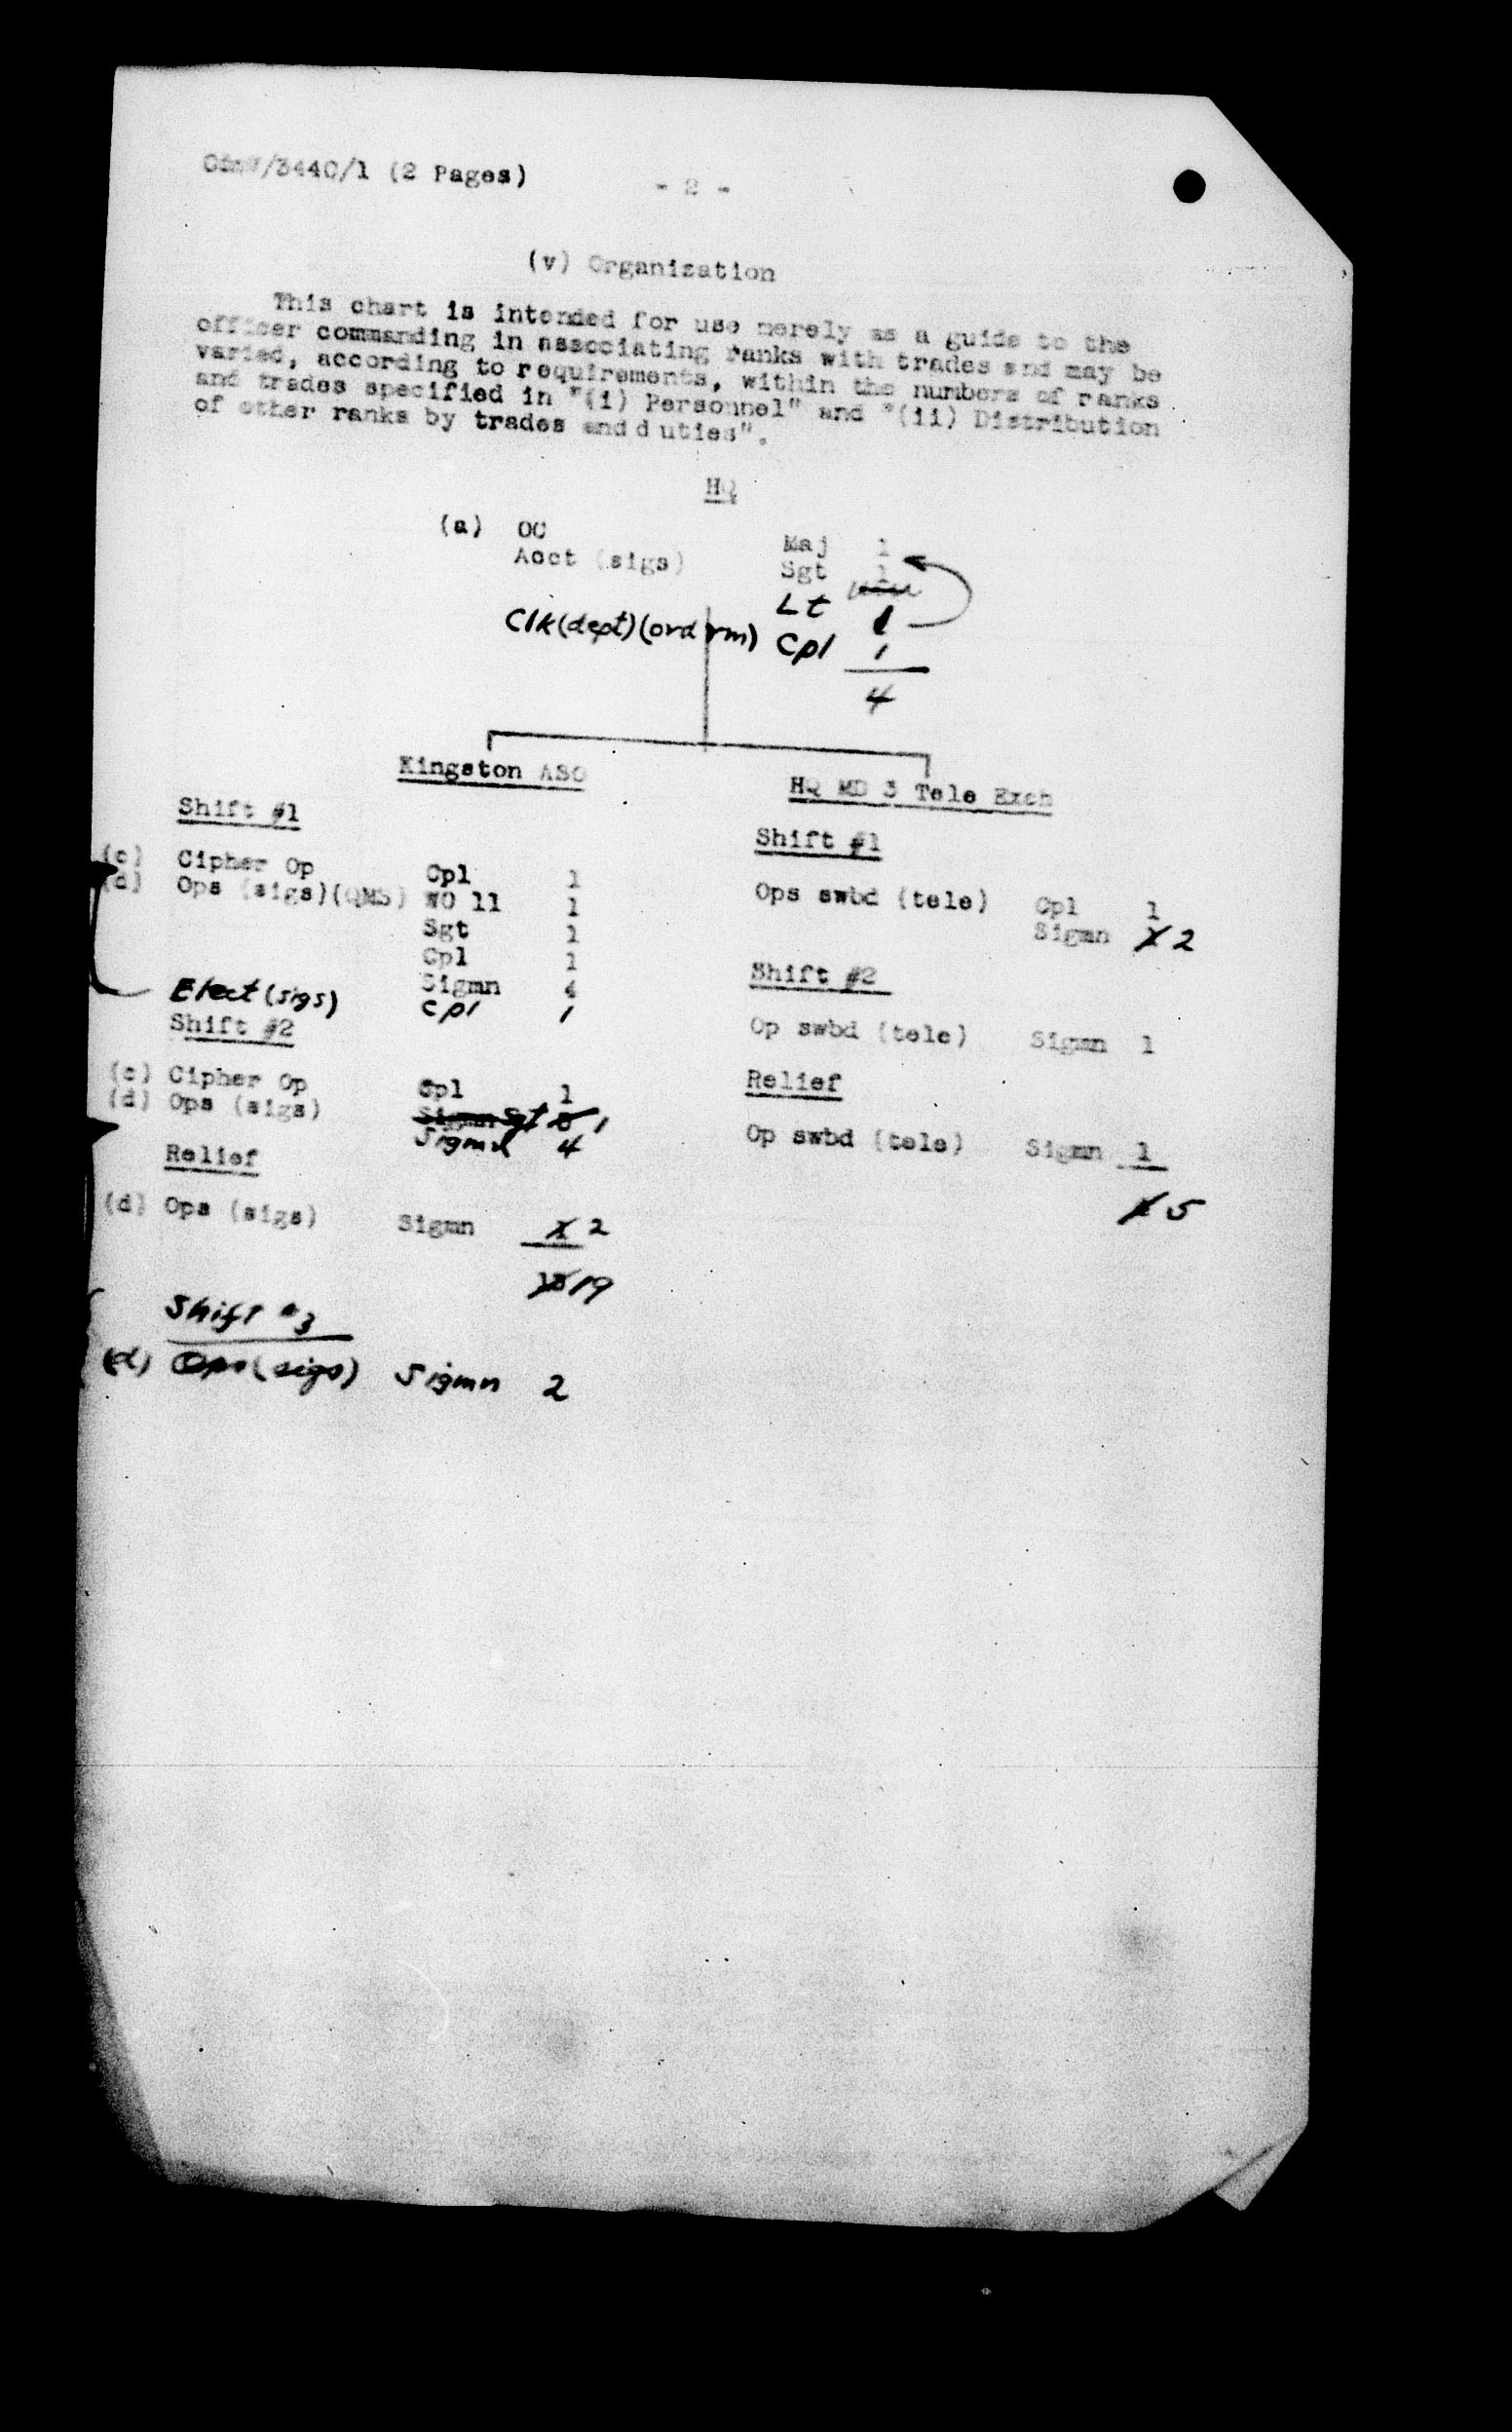 /3440/1 (2 Pages)
- 2 -
(v) Organization
This chart is intended for use merely as a guide to the
officer commanding in associating ranks with trades and may be
varied, according to requirements, within the numbers of ranks
and trades specified in "(i) Personnel" and "(ii) Distribution
of other ranks by trades and d uties".
HQ
(a) OC Maj 1
Acct (sigs) Sgt 1
Lt 1
Clk(dept)(ord rm) Cpl 1
4
Kingston ASO
Shift #1
(c) Cipher Op Cpl 1
(d) Ops (sigs)(QMS) WO 11 1
Sgt 1
Cpl 1
Sigmn 4
Elect (sigs) Cpl 1
Shift #2
(c) Cipher Op Cpl 1
(d) Ops (sigs) Sigmn Sgt 1
Sigmn 4
Relief
(d) Ops (sigs) Sigmn 2
19
Shift #3
(d) Ops (sigs) Sigmn 2
HQ MD 3 Tele Exch
Shift #1
Ops swbd (tele) Cpl 1
Sigmn 2
Shift #2
Op swbd (tele) Sigmn 1
Relief
Op swbd (tele) Sigmn 1
5